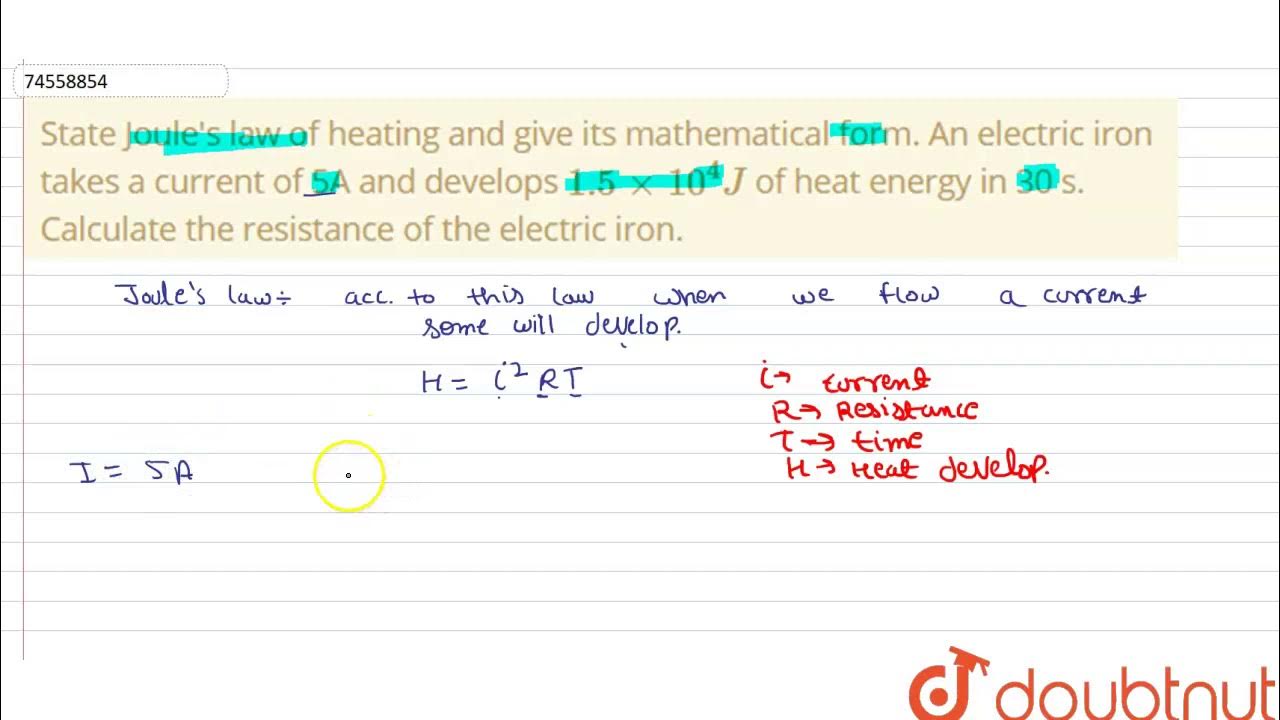 74558854
State Joule's law of heating and give its mathematical form. An electric iron
takes a current of 5A and develops 1.5 × 10⁴ J of heat energy in 30 s.
Calculate the resistance of the electric iron.
Joule's law÷ acc. to this law when we flow a current
some will develop.
H = i² RT
i→ current
R→ Resistance
T→ time
H→ Heat develop.
I = 5A
doubtnut